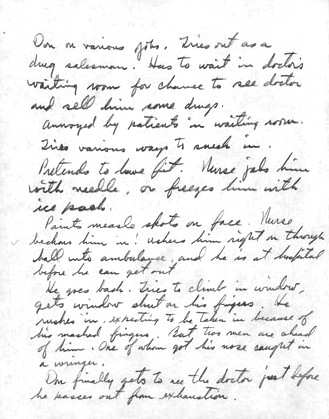 Don on various jobs. Tries out as a
drug salesman. Has to wait in doctor's
waiting room for chance to see doctor
and sell him some drugs.
Annoyed by patients in waiting room.
Tries various ways to sneak in.
Pretends to have fit. Nurse jabs him
with needle, or freezes him with
ice pack.
Paints measle spots on face. Nurse
beckons him in! ushers him right on through
hall into ambulance, and he is at hospital
before he can get out
He goes back. Tries to climb in window,
gets window shut on his fingers. He
rushes in expecting to be taken in because of
his mashed fingers. But two men are ahead
of him. One of whom got his nose caught in
a wringer.
Don finally gets to see the doctor just before
he passes out from exhaustion.